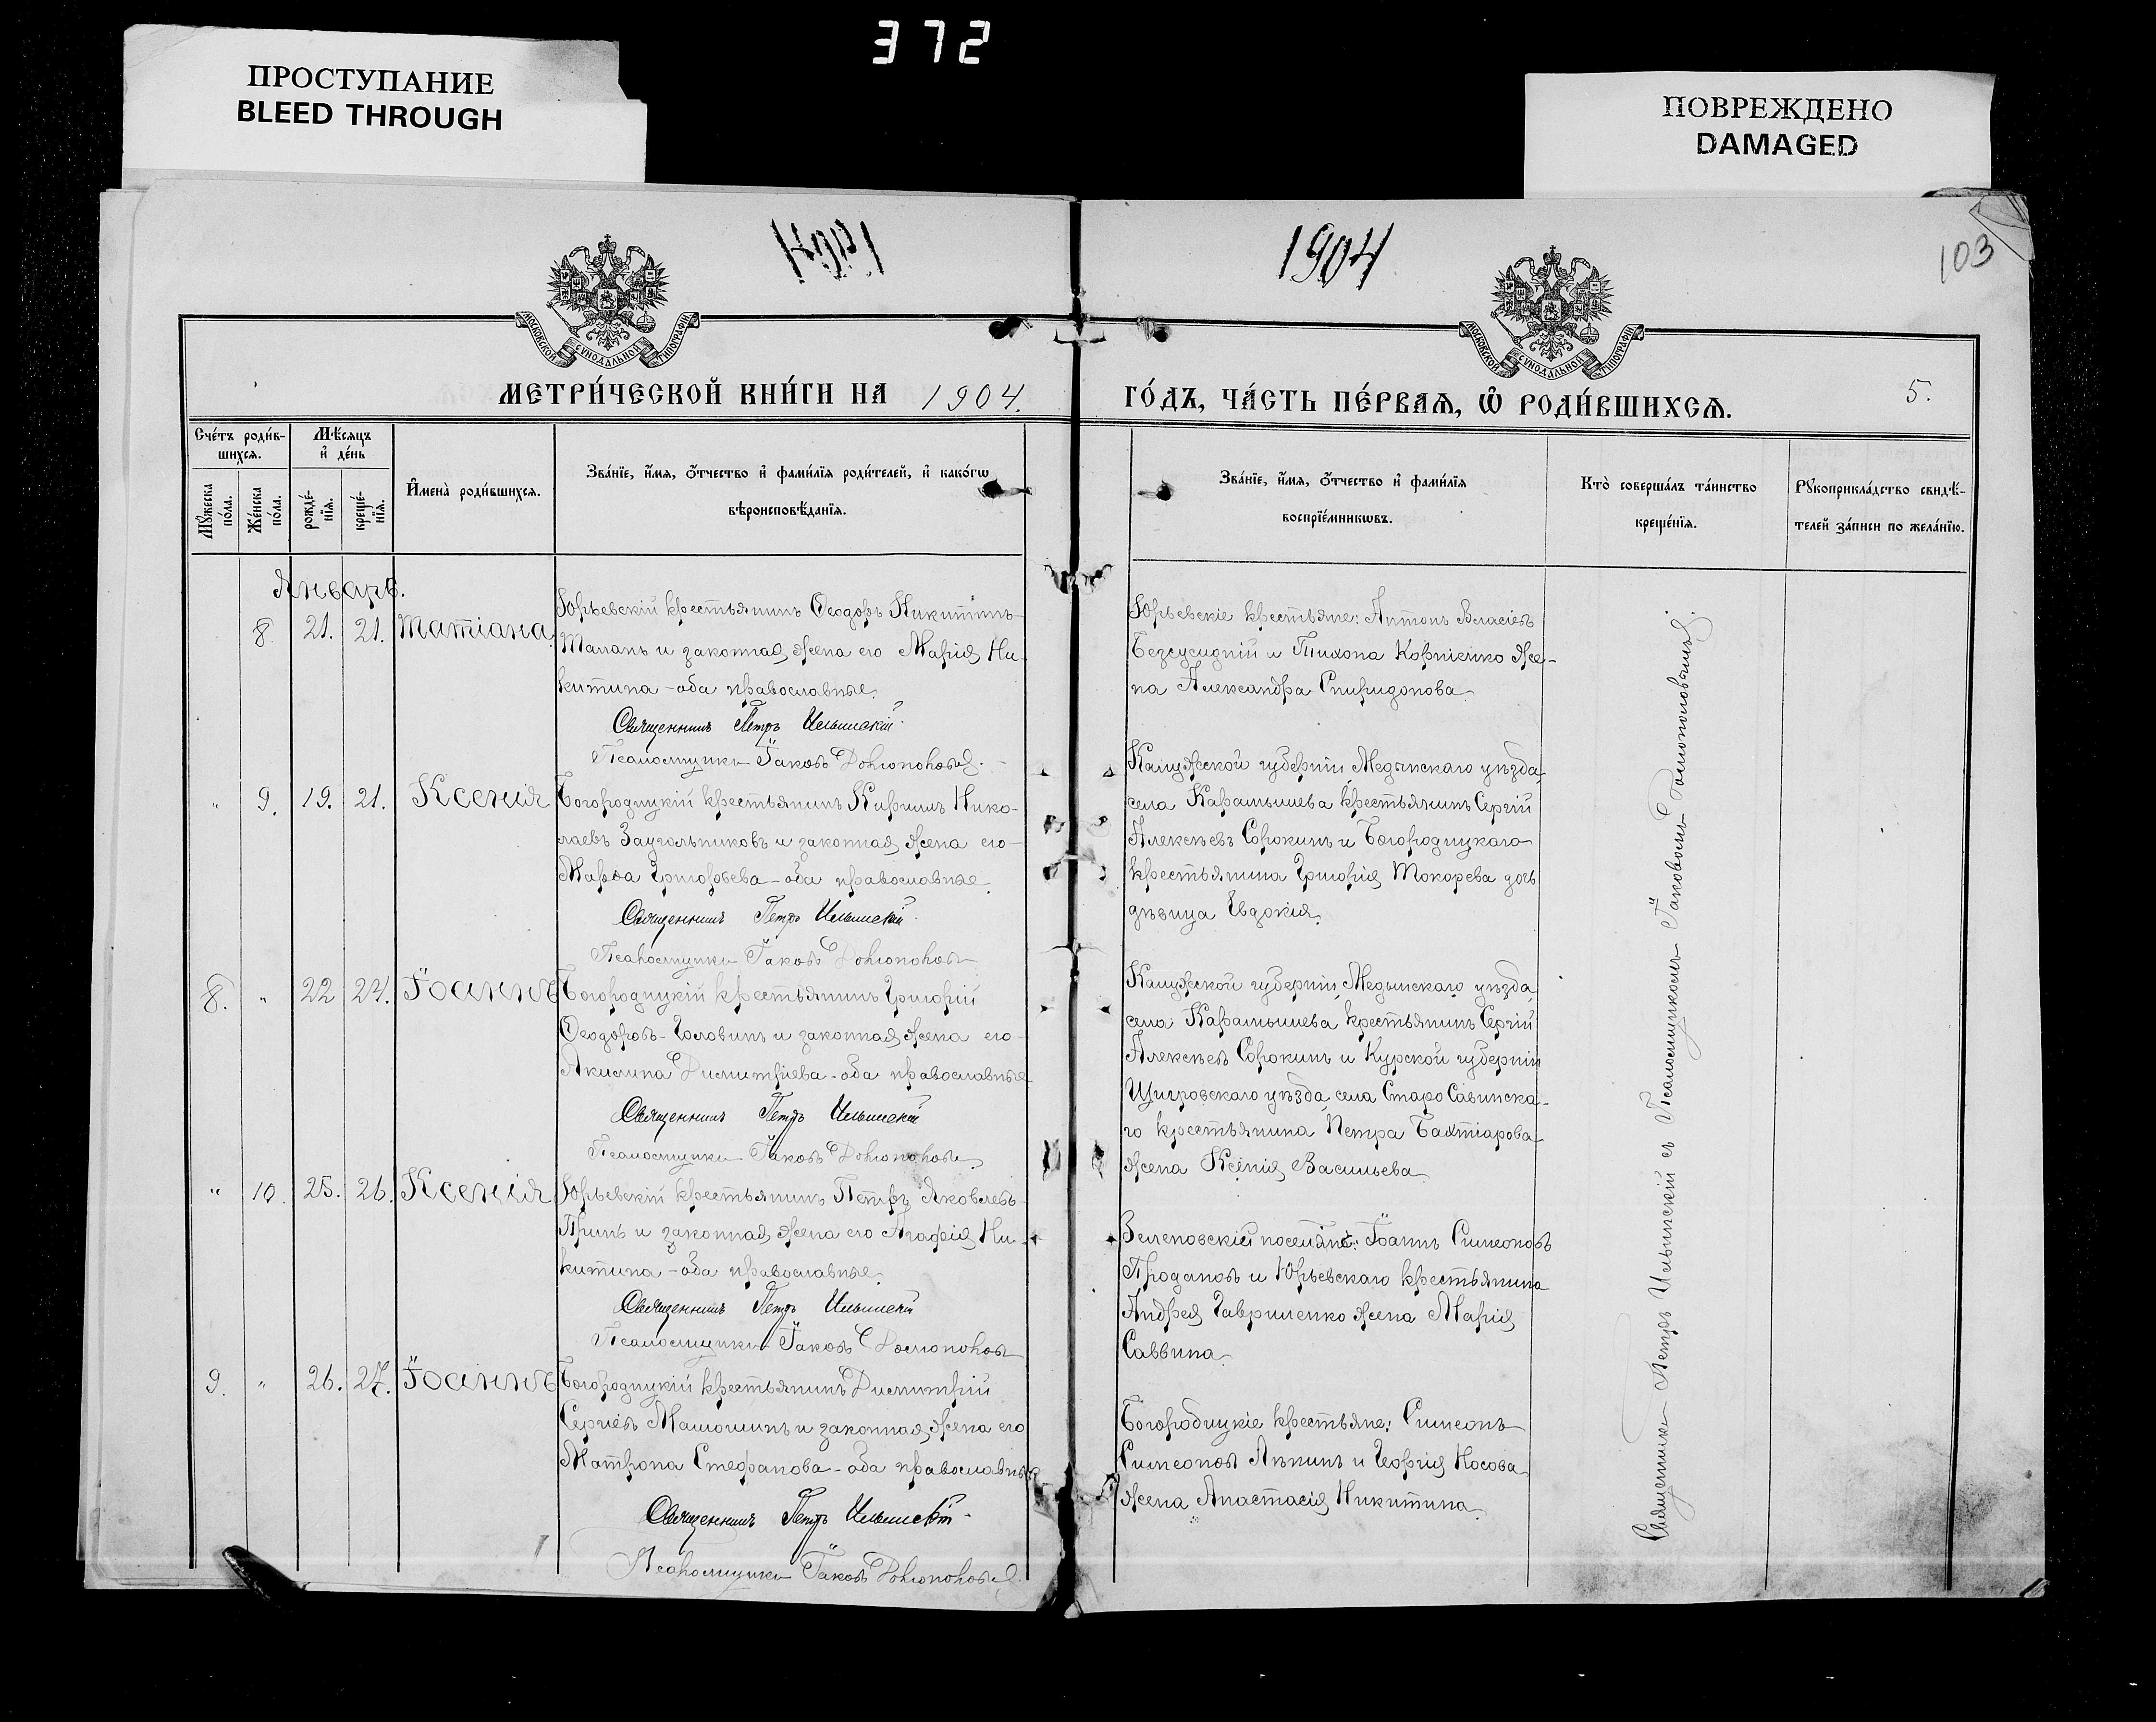 372
ПРОСТУПАНИЕ
BLEED THROUGH
ПОВРЕЖДЕНО
DAMAGED
1904
103
МОСКОВСКОЙ СѴНОДАЛЬНОЙ ТИПОГРАФІИ
МОСКОВСКОЙ СѴНОДАЛЬНОЙ ТИПОГРАФІИ
МЕТРИ́ЧЕСКОЙ КНИ́ГИ НА 1904.
ГО́ДЪ, ЧА́СТЬ ПЕ́РВАѦ, Ѡ҆ РОДИ́ВШИХСѦ.
5.
Сче́тъ роди́в-
шихсѧ.
Мѣ́сѧцъ
и҆ де́нь
Мꙋ́жеска
по́ла.
Же́нска
по́ла.
рожде́-
нїѧ.
креще́-
нїѧ.
И҆мена̀ роди́вшихсѧ.
Зва́нїе, и҆́мѧ, ѻ҆́тчество и҆ фами́лїѧ роди́телей, и҆ како́гѡ
вѣроисповѣ́данїѧ.
Зва́нїе, и҆́мѧ, ѻ҆́тчество и҆ фами́лїѧ
воспрїе́мникѡвъ.
Кто̀ соверша́лъ та́инство
креще́нїѧ.
Рꙋкоприкла́дство свидѣ́-
телей за́писи по жела́нїю.
Январь.
8 21. 21. Татіана
Юрьевскій крестьянинъ Ѳеодоръ Никитинъ
и законная жена его Марія Ни-
китина - оба православные.
Священникъ Петръ Ильинскій.
Псаломщикъ Іаковъ
Юрьевскіе крестьяне: Антонъ Власіевъ
и Тихона Корніенко же-
на Александра Спиридонова.
" 9. 19. 21. Ксенія
Богородицкій крестьянинъ Кириллъ Нико-
лаевъ Заугольниковъ и законная жена его
Марѳа Григорьева - оба православные.
Священникъ Петръ Ильинскій.
Псаломщикъ Іаковъ
Калужской губерніи Медынскаго уѣзда
села Карамышева крестьянинъ Сергій
Алексѣевъ Сорокинъ и Богородицкаго
крестьянина Григорія Токорева дочь
дѣвица Евдокія.
8. " 22 24. Іоаннъ
Богородицкій крестьянинъ Григорій
Ѳеодоровъ Головинъ и законная жена его
Акилина Димитріева - оба православные
Священникъ Петръ Ильинскій
Псаломщикъ Іаковъ
Калужской губерніи Медынскаго уѣзда
села Карамышева крестьянинъ Сергій
Алексѣевъ Сорокинъ и Курской губерніи
Щигровскаго уѣзда села Старо Савинска-
го крестьянина Петра Бахтіарова
жена Ксенія Васильева.
" 10. 25. 26. Ксенія
Юрьевскій крестьянинъ Петръ Яковлевъ
и законная жена его Агафія Ни-
китина - оба православные.
Священникъ Петръ Ильинскій
Псаломщикъ Іаковъ
Зеленовскій поселянинъ: Іоаннъ Симеоновъ
Продановъ и Юрьевскаго крестьянина
Андрея Гавриленко жена Марія
Саввина.
9. " 26. 27. Іоаннъ
Богородицкій крестьянинъ Димитрій
Сергіевъ и законная жена его
Матрона Стефанова - оба православные
Священникъ Петръ Ильинскій.
Псаломщикъ Іаковъ
Богородицкіе крестьяне: Симеонъ
Симеоновъ Ляпинъ и Георгія Носова
жена Анастасія Никитина.
Священникъ Петръ Ильинскій съ Псаломщикомъ Іаковомъ